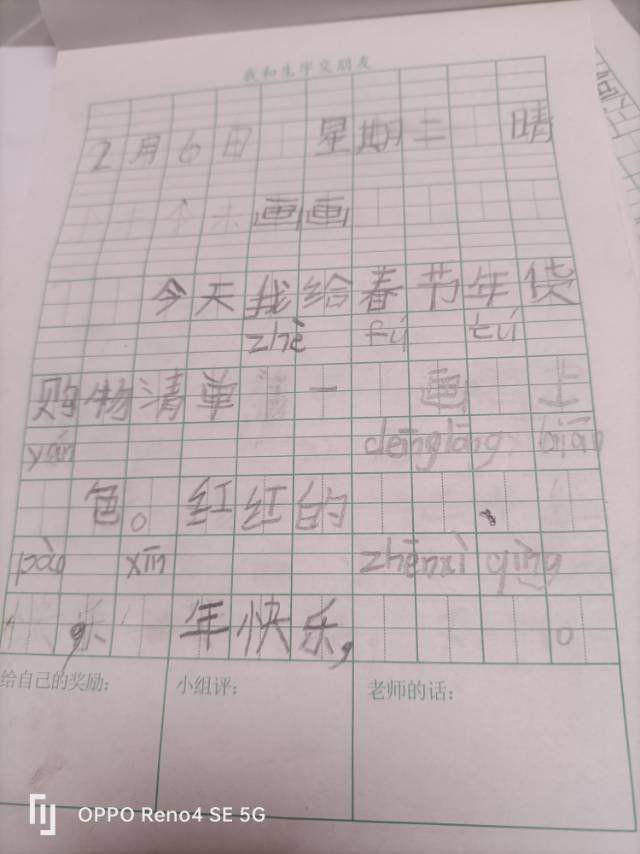 我和生字交朋友
2月6日 星期二 晴
画画
今天我给春节年货
zhè fú tú
购物清单 一 画上
yán dēnglōng biān
色。红红的
pào xīn zhēnxì qìng
乐 年快乐，。
给自己的奖励： 小组评： 老师的话：
OPPO Reno4 SE 5G